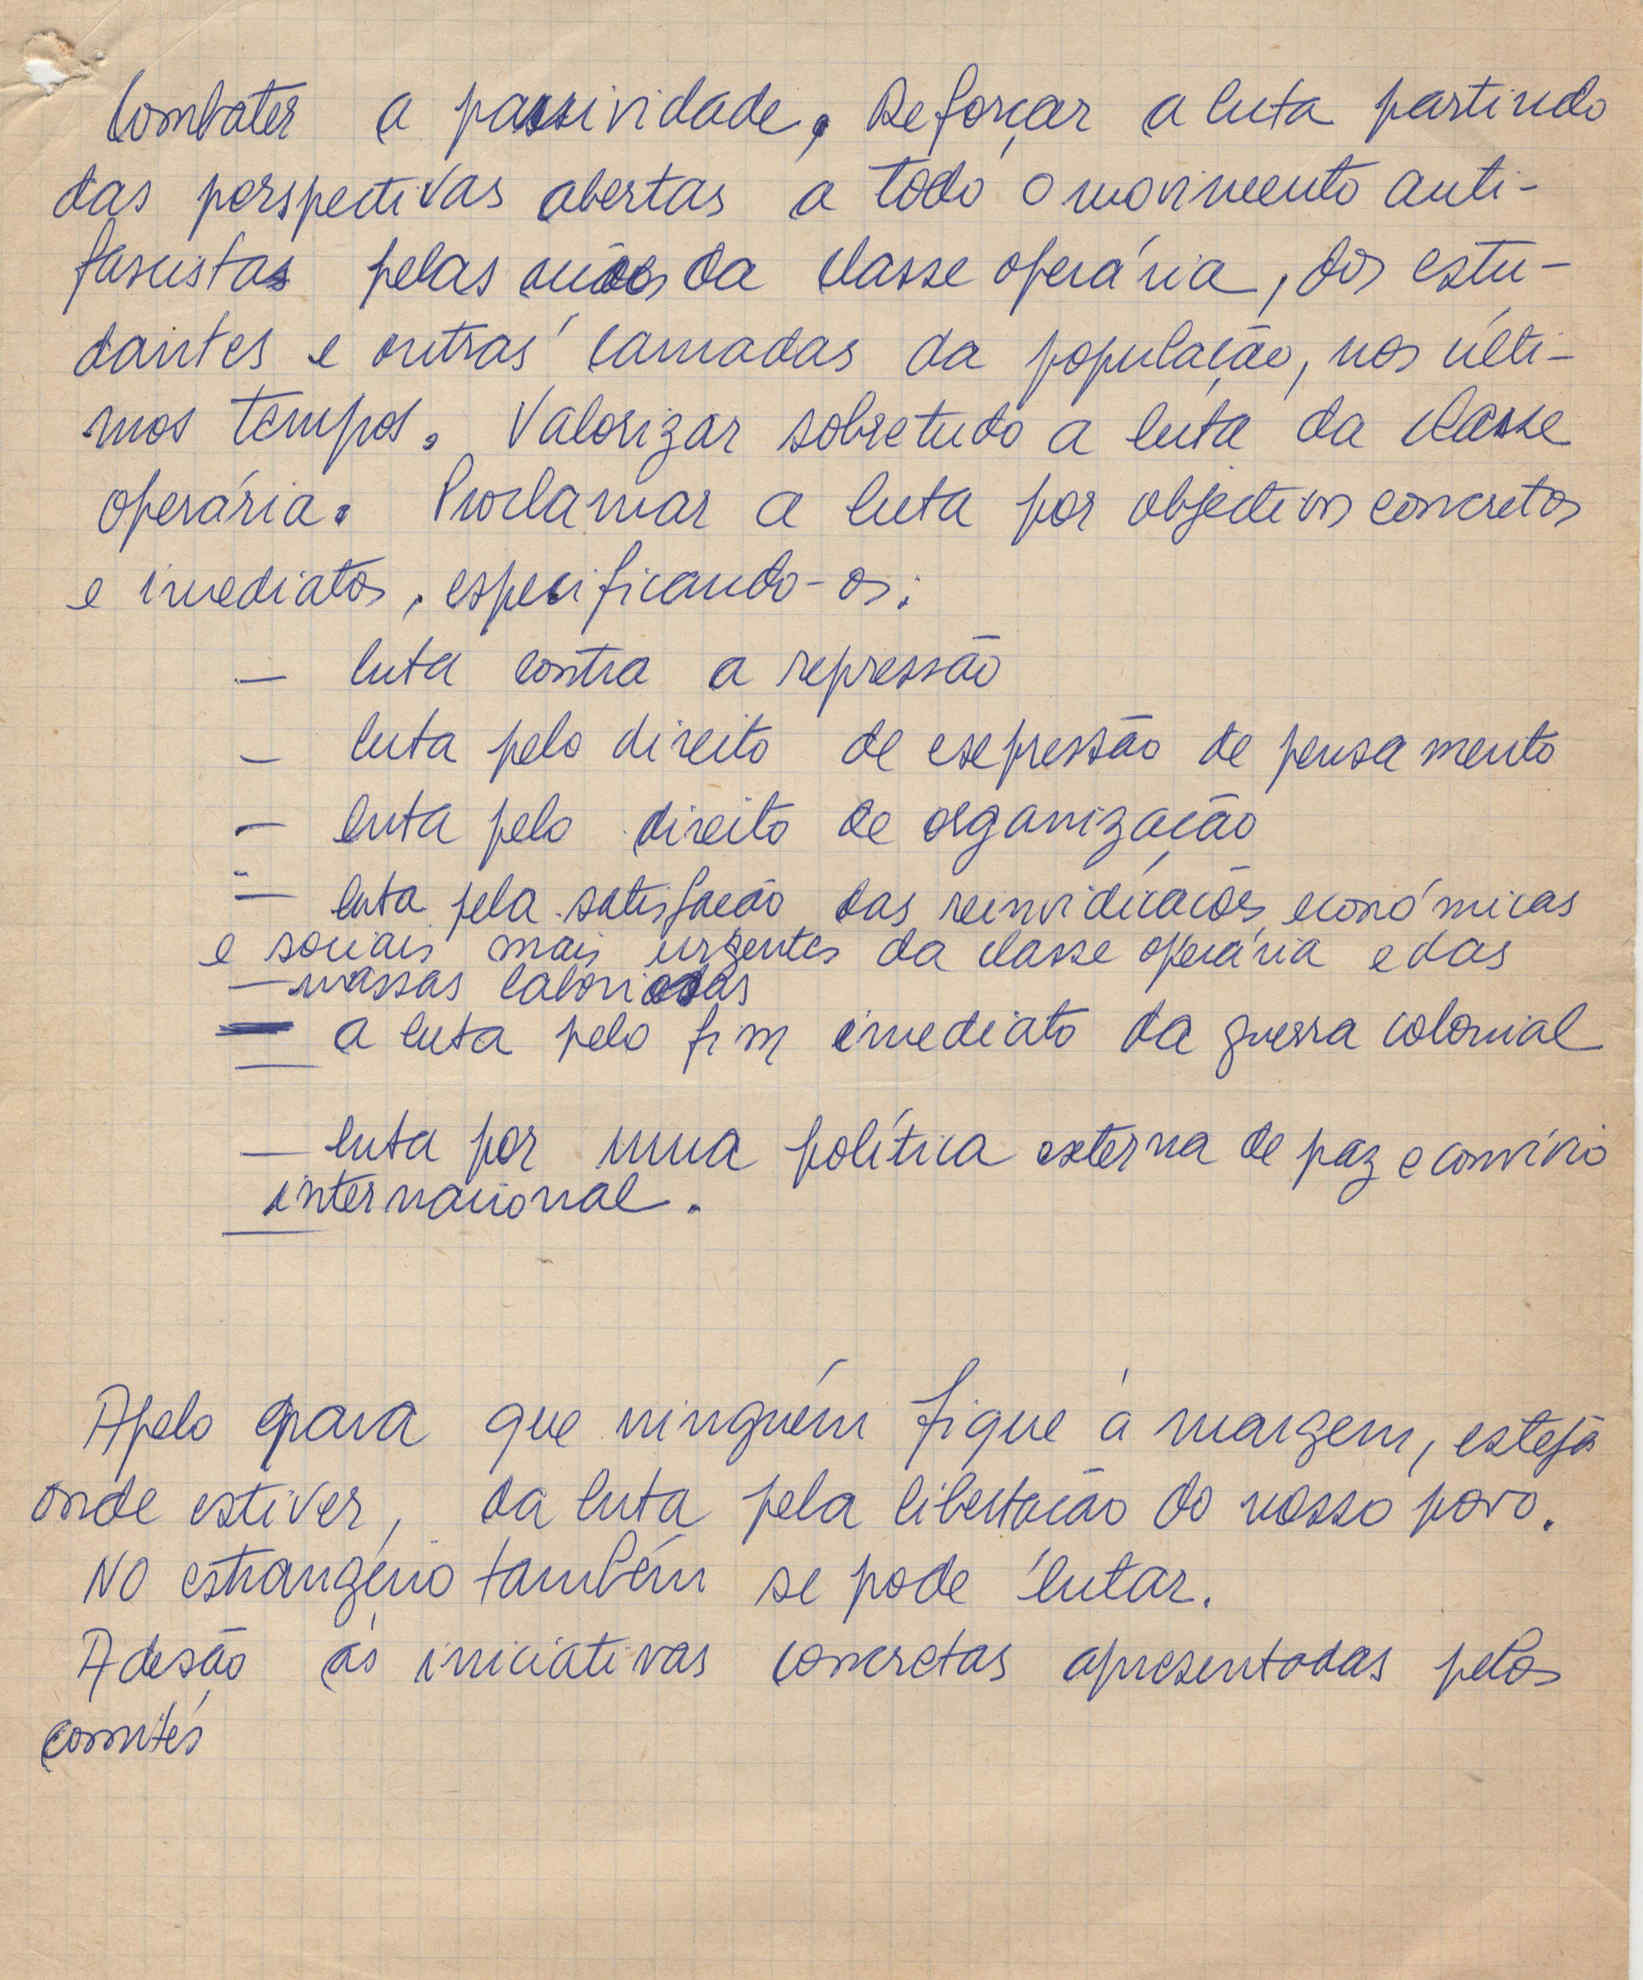 Combater a passividade. Reforçar a luta partindo
das perspectivas abertas a todo o movimento anti-
fascista pelas mãos da classe operária, dos estu-
dantes e outras camadas da população, nos últi-
mos tempos. Valorizar sobretudo a luta da classe
operária. Proclamar a luta por objectivos concretos
e imediatos, especificando-os:
— luta contra a repressão
— luta pelo direito de expressão de pensamento
— luta pelo direito de organização
— luta pela satisfação das reinvidicações económicas
e sociais mais urgentes da classe operária e das
— massas laboriosas
— a luta pelo fim imediato da guerra colonial
— luta por uma política externa de paz e convívio
internacional.
Apelo para que ninguém fique à margem, esteja
onde estiver, da luta pela libertação do nosso povo.
NO estrangeiro também se pode lutar.
Adesão às iniciativas concretas apresentadas pelos
comités